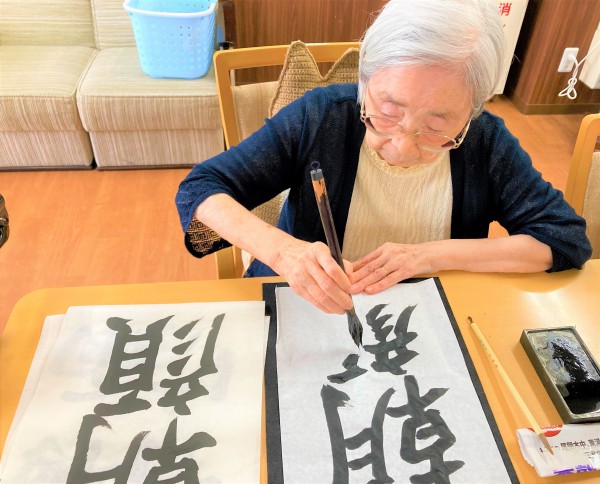 消
朝顔
朝彦